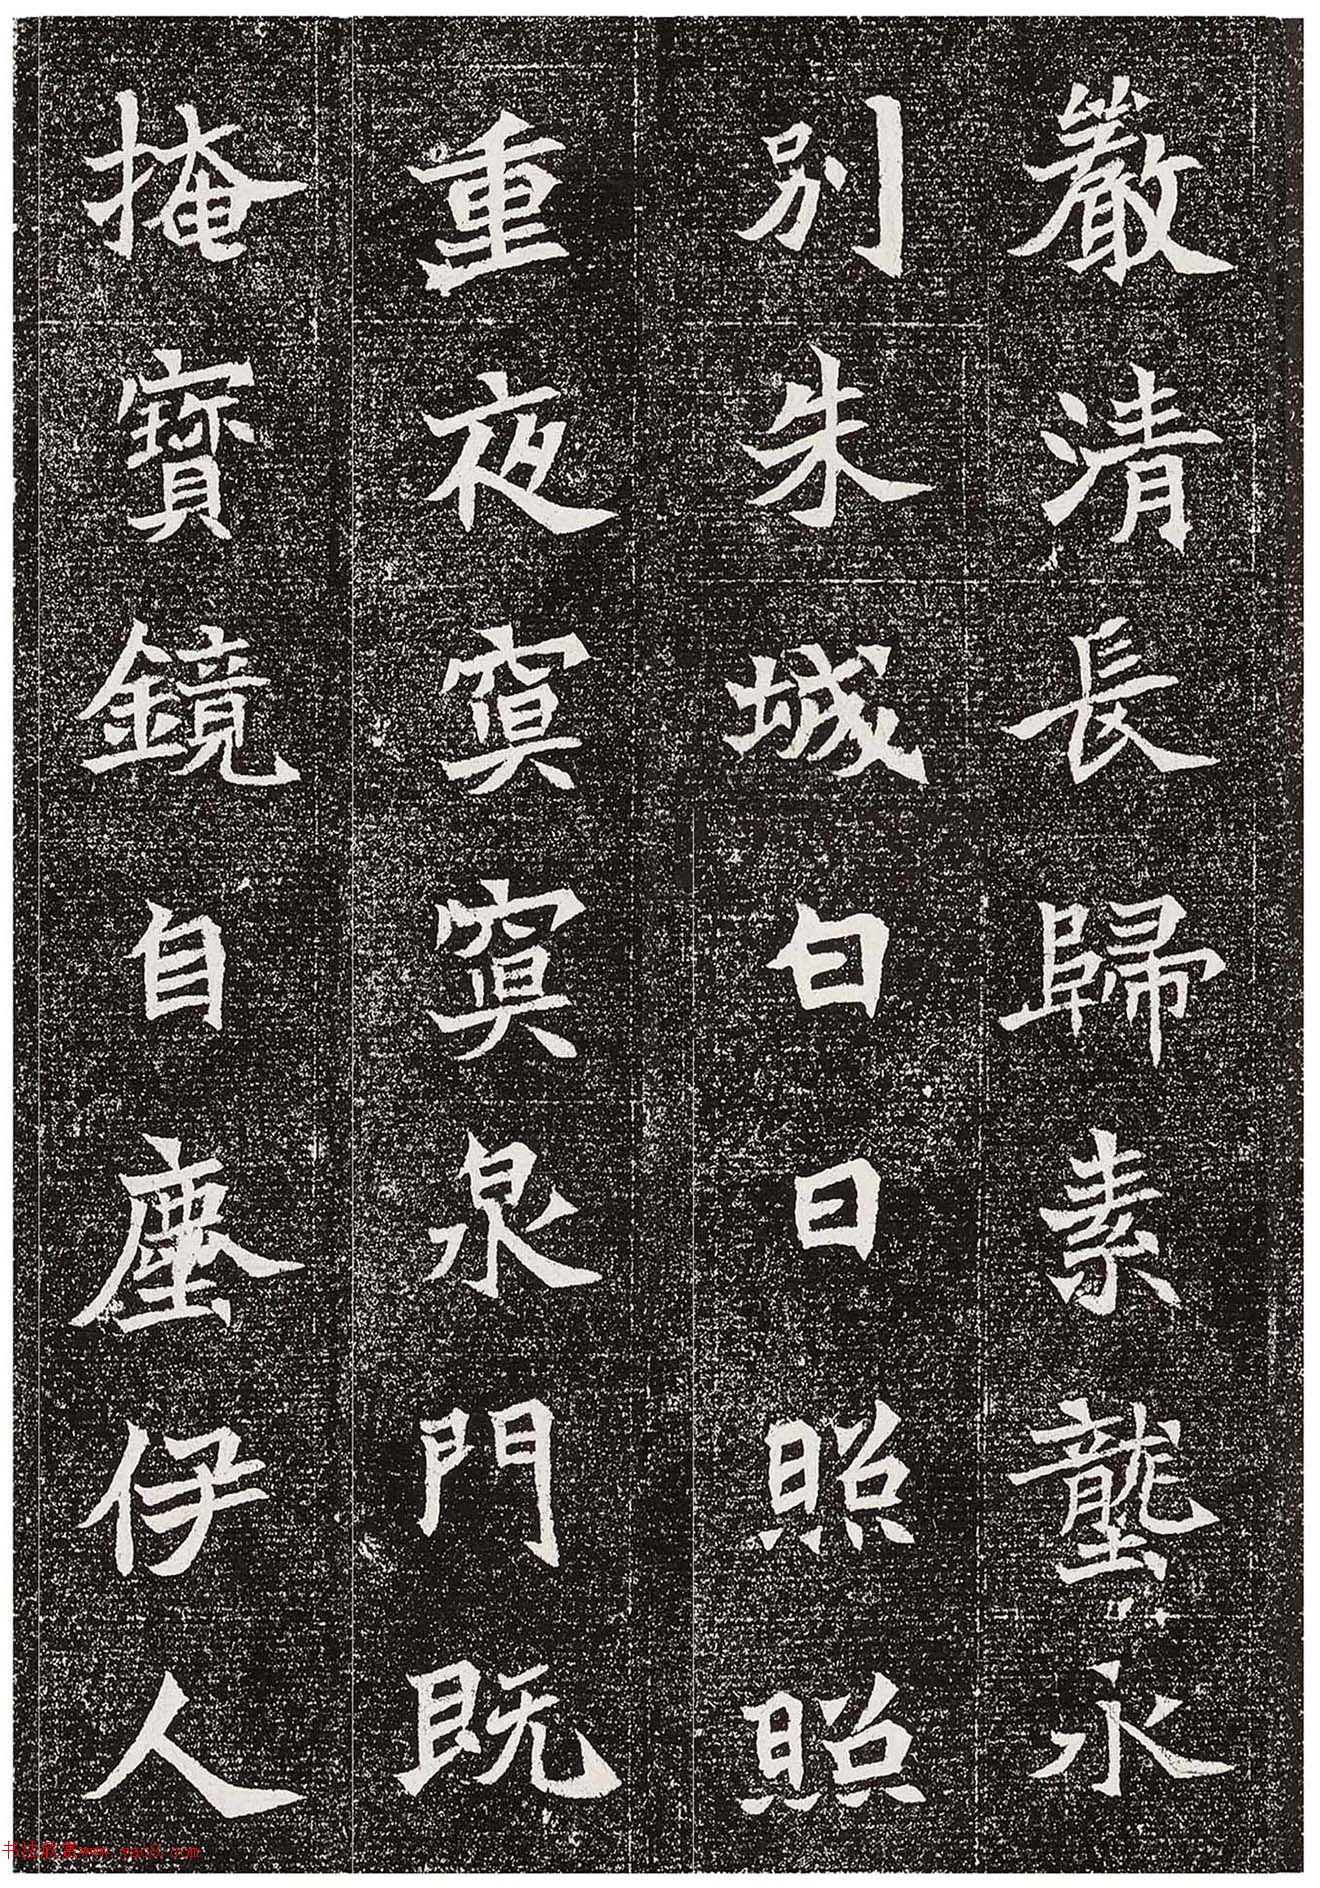 嚴清長歸素壟永
別朱城白日照照
重夜冥冥泉門既
掩寳鏡自塵伊人
书法欣赏www.yac8.com